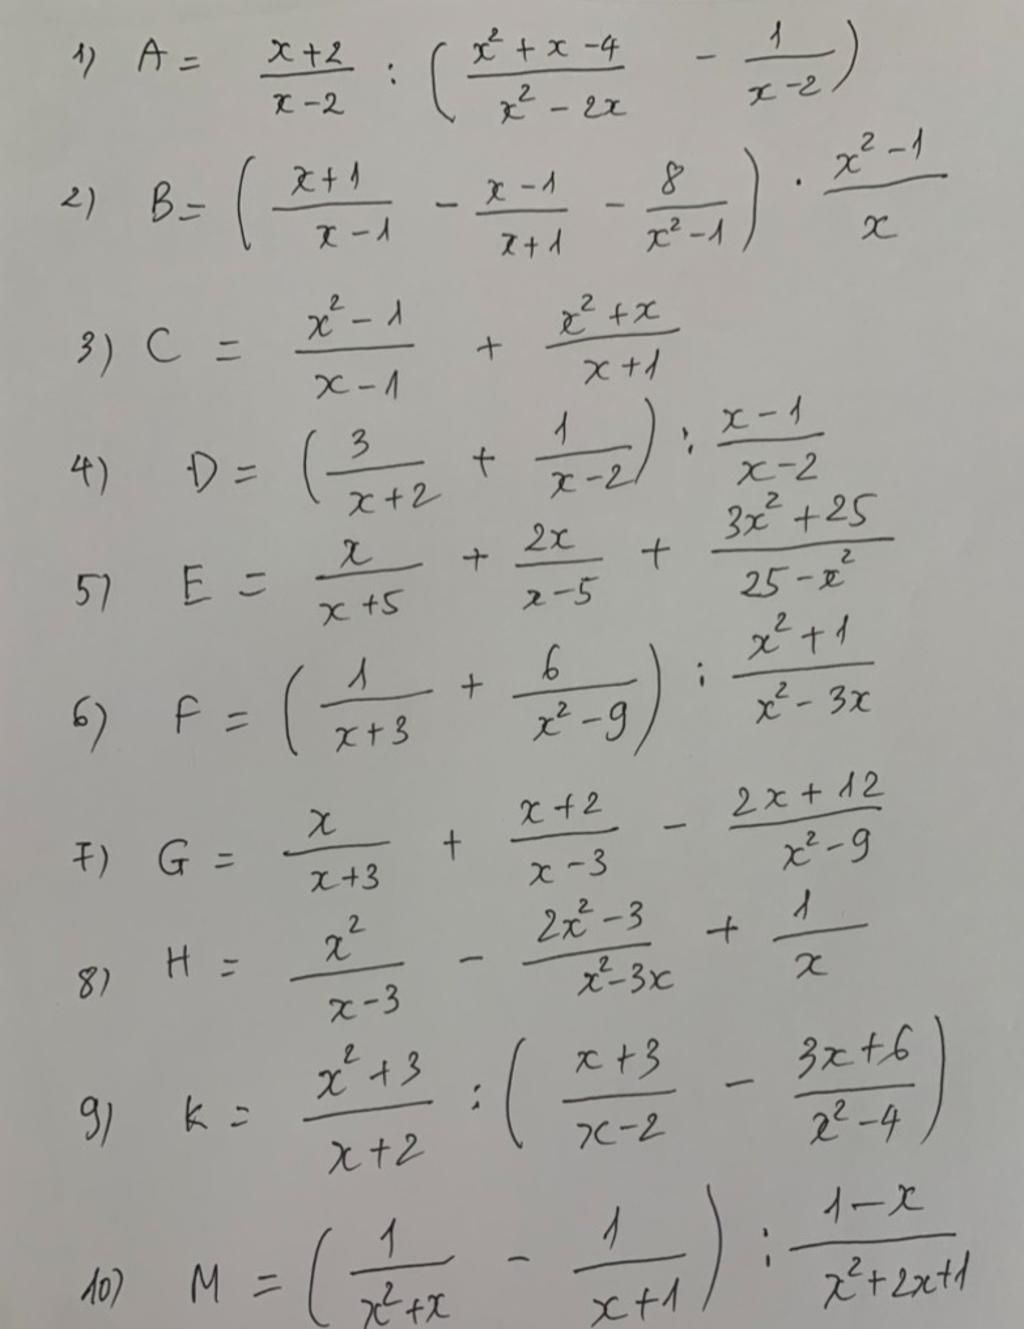 1) A = \frac{x+2}{x-2} : ( \frac{x^2+x-4}{x^2-2x} - \frac{1}{x-2} )
2) B = ( \frac{x+1}{x-1} - \frac{x-1}{x+1} - \frac{8}{x^2-1} ) . \frac{x^2-1}{x}
3) C = \frac{x^2-1}{x-1} + \frac{x^2+x}{x+1}
4) D = ( \frac{3}{x+2} + \frac{1}{x-2} ) : \frac{x-1}{x-2}
5) E = \frac{x}{x+5} + \frac{2x}{x-5} + \frac{3x^2+25}{25-x^2}
6) F = ( \frac{1}{x+3} + \frac{6}{x^2-9} ) : \frac{x^2+1}{x^2-3x}
7) G = \frac{x}{x+3} + \frac{x+2}{x-3} - \frac{2x+12}{x^2-9}
8) H = \frac{x^2}{x-3} - \frac{2x^2-3}{x^2-3x} + \frac{1}{x}
9) K = \frac{x^2+3}{x+2} : ( \frac{x+3}{x-2} - \frac{3x+6}{x^2-4} )
10) M = ( \frac{1}{x^2+x} - \frac{1}{x+1} ) : \frac{1-x}{x^2+2x+1}